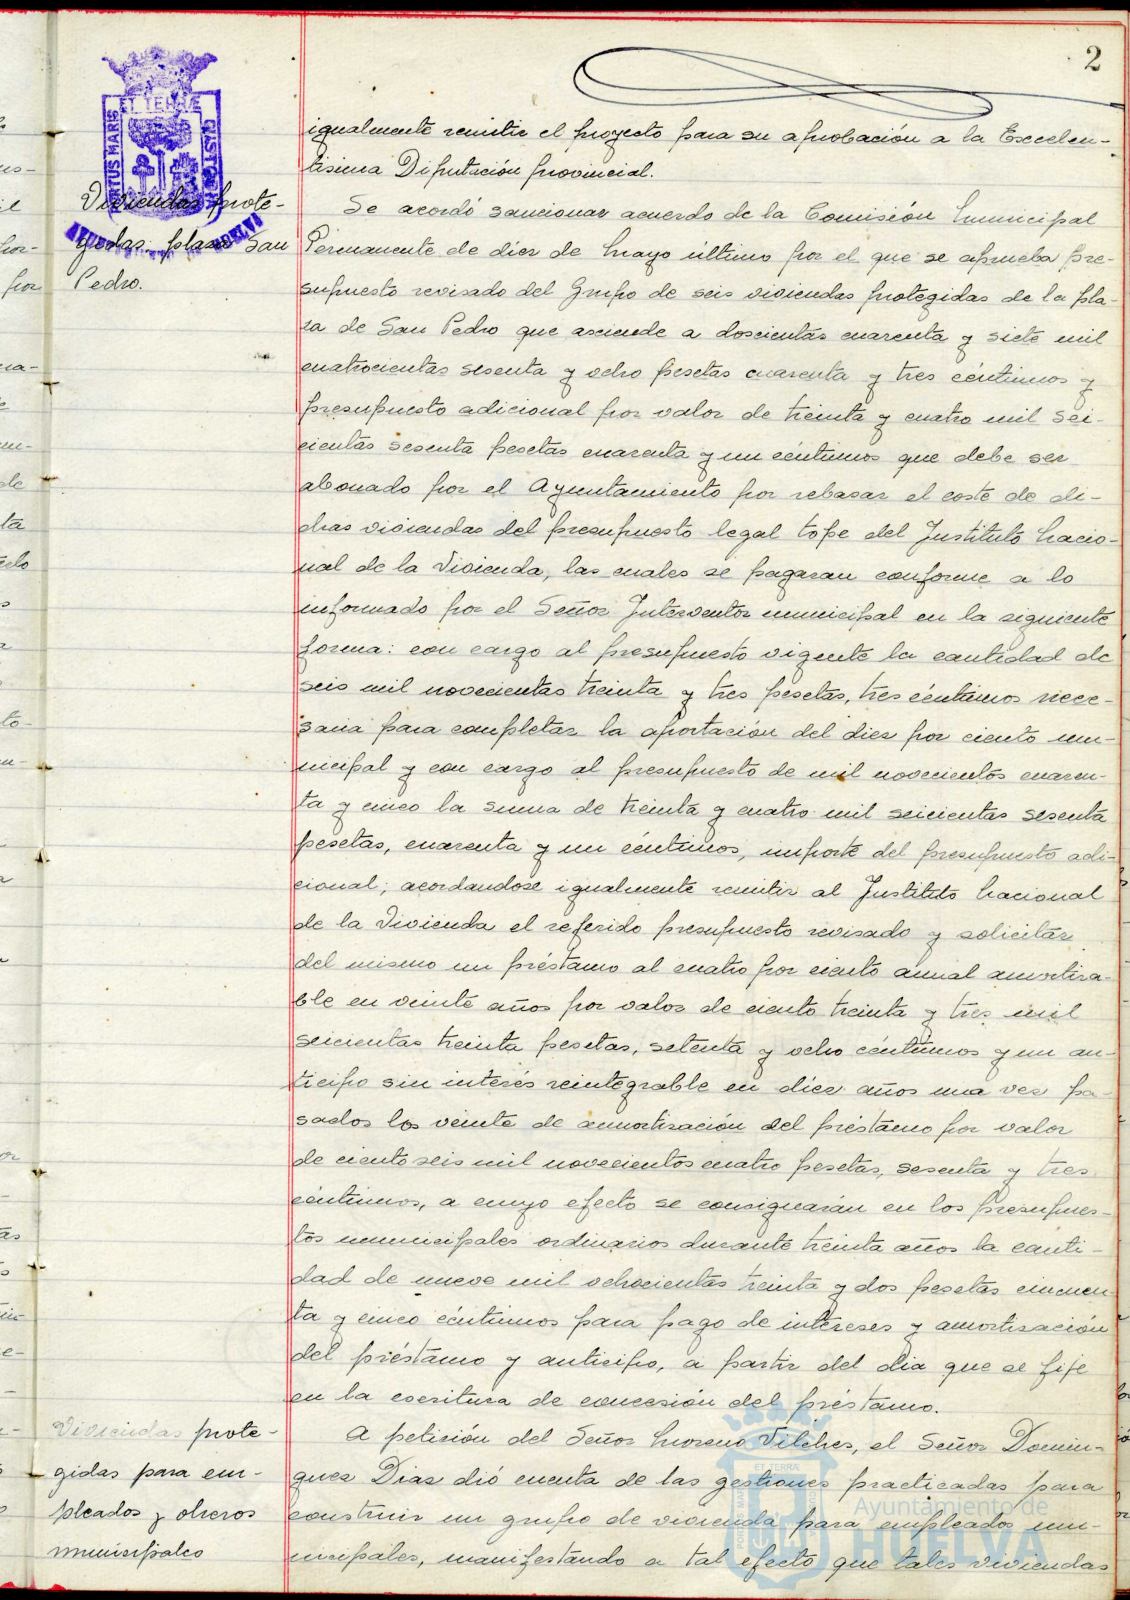 2
igualmente remitir el proyecto para su aprobación a la Excelen-
tisima Diputación provincial.
Viviendas prote-
gidas plaza San
Pedro.
Se acordó sancionar acuerdo de la Comisión municipal
Permanente de diez de Mayo último por el que se aprueba pre-
supuesto revisado del Grupo de seis viviendas protegidas de la pla-
za de San Pedro que asciende a doscientas cuarenta y siete mil
cuatrocientas sesenta y ocho pesetas cuarenta y tres céntimos y
presupuesto adicional por valor de treinta y cuatro mil sei-
cientas sesenta pesetas cuarenta y un céntimos que debe ser
abonado por el Ayuntamiento por rebasar el coste de di-
chas viviendas del presupuesto legal tope del Instituto Nacio-
nal de la Vivienda, las cuales se pagaran conforme a lo
informado por el Señor Interventor municipal en la siguiente
forma: con cargo al presupuesto vigente la cantidad de
seis mil novecientas treinta y tres pesetas, tres céntimos nece-
saria para completar la aportación del diez por ciento mu-
nicipal y con cargo al presupuesto de mil novecientos cuaren-
ta y cinco la suma de treinta y cuatro mil seicientas sesenta
pesetas, cuarenta y un céntimos, importe del presupuesto adi-
cional, acordandose igualmente remitir al Instituto Nacional
de la Vivienda el referido presupuesto revisado y solicitar
del mismo un préstamo al cuatro por ciento anual amortiza-
ble en veinte años por valor de ciento treinta y tres mil
seicientas treinta pesetas, setenta y ocho céntimos y un an-
ticipo sin interés reintegrable en diez años una vez pa-
sados los veinte de amortización del préstamo por valor
de ciento seis mil novecientos cuatro pesetas, sesenta y tres
céntimos, a cuyo efecto se consignarán en los Presupues-
tos municipales ordinarios durante treinta años la canti-
dad de nueve mil ochocientas treinta y dos pesetas cincuen
ta y cinco céntimos para pago de intereses y amortización
del préstamo y anticipo, a partir del dia que se fije
en la escritura de concesión del préstamo.
Viviendas prote-
gidas para em-
pleados y obreros
municipales
A petición del Señor Moreno Vilches, el Señor Domin-
guez Diaz dió cuenta de las gestiones practicadas para
construir un grupo de vivienda para empleados mu-
nicipales, manifestando a tal efecto que tales viviendas
ET TERRÆ
Ayuntamiento de
HUELVA